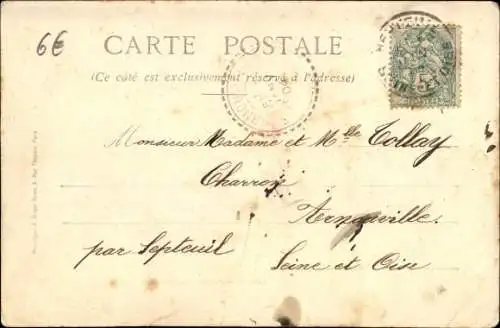 6€
CARTE POSTALE
(Ce côté est exclusivement réservé à l'adresse)
Monsieur Madame et Mlle Tollay
Charron
Arnouville
par Septeuil
Seine et Oise